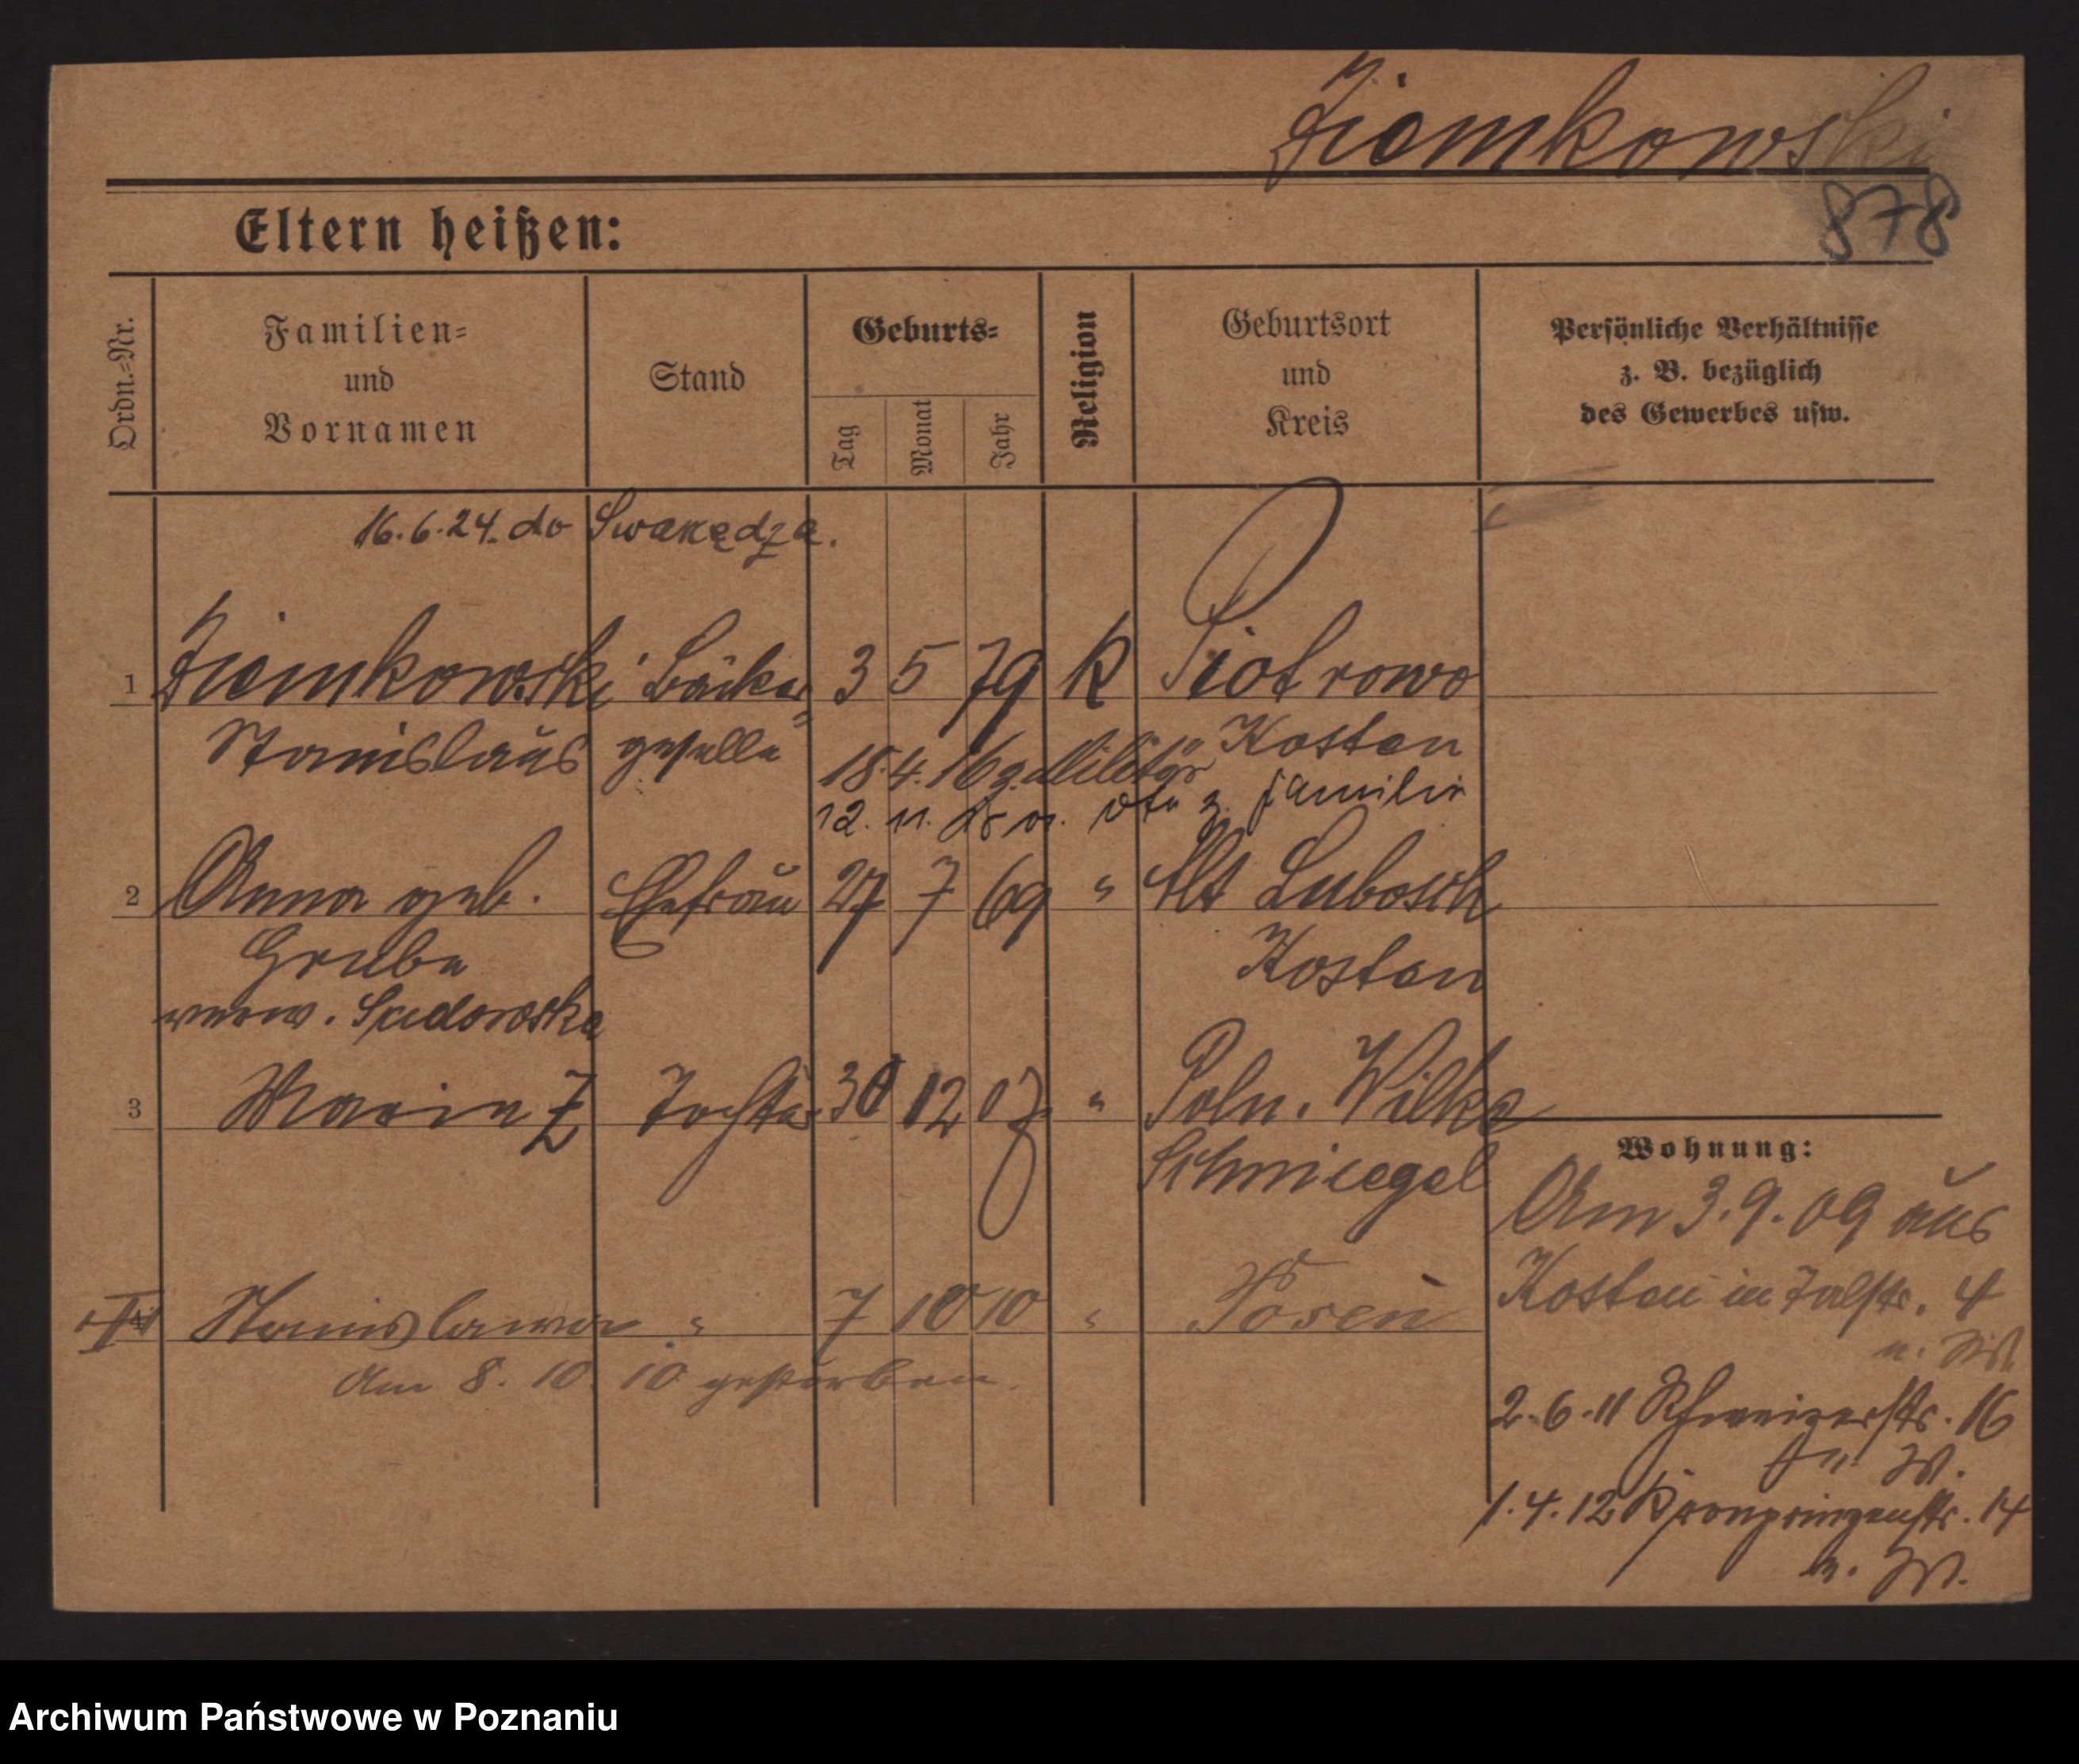 Ziomkowski
878
Eltern heißen:
Ordn.=Nr.
Familien=
und
Vornamen
Stand
Geburts=
Tag
Monat
Jahr
Religion
Geburtsort
und
Kreis
Persönliche Verhältnisse
z. B. bezüglich
des Gewerbes usw.
16.6.24. do Swarzędza.
1 Ziomkowski Bäcker 3 5 79 K Piotrowo
Stanislaus geselle Kosten
18.4.16 z. Militär
12. 11. z. Familie
2 Anna geb. Ehefrau 27 7 69 " Alt Lubosch
Grube Kosten
verw. Sudowska
3 Marie Z Tochter 30 12 07 " Poln. Wilke
Schmiegel
4 Stanislawa " 7 10 10 " Posen
Am 8. 10. 10 gestorben.
Wohnung:
Am 3.9.09 aus
Kosten in Talstr. 4
2.6.11 Schweizerstr. 16
1.4.12 Kronprinzenstr. 14
Archiwum Państwowe w Poznaniu